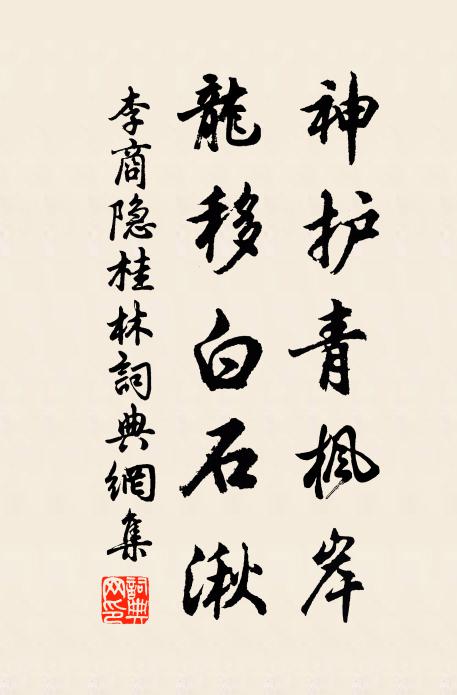 神护青枫岸
龍移白石湫
李商隐桂林詞典網集
詞典网印